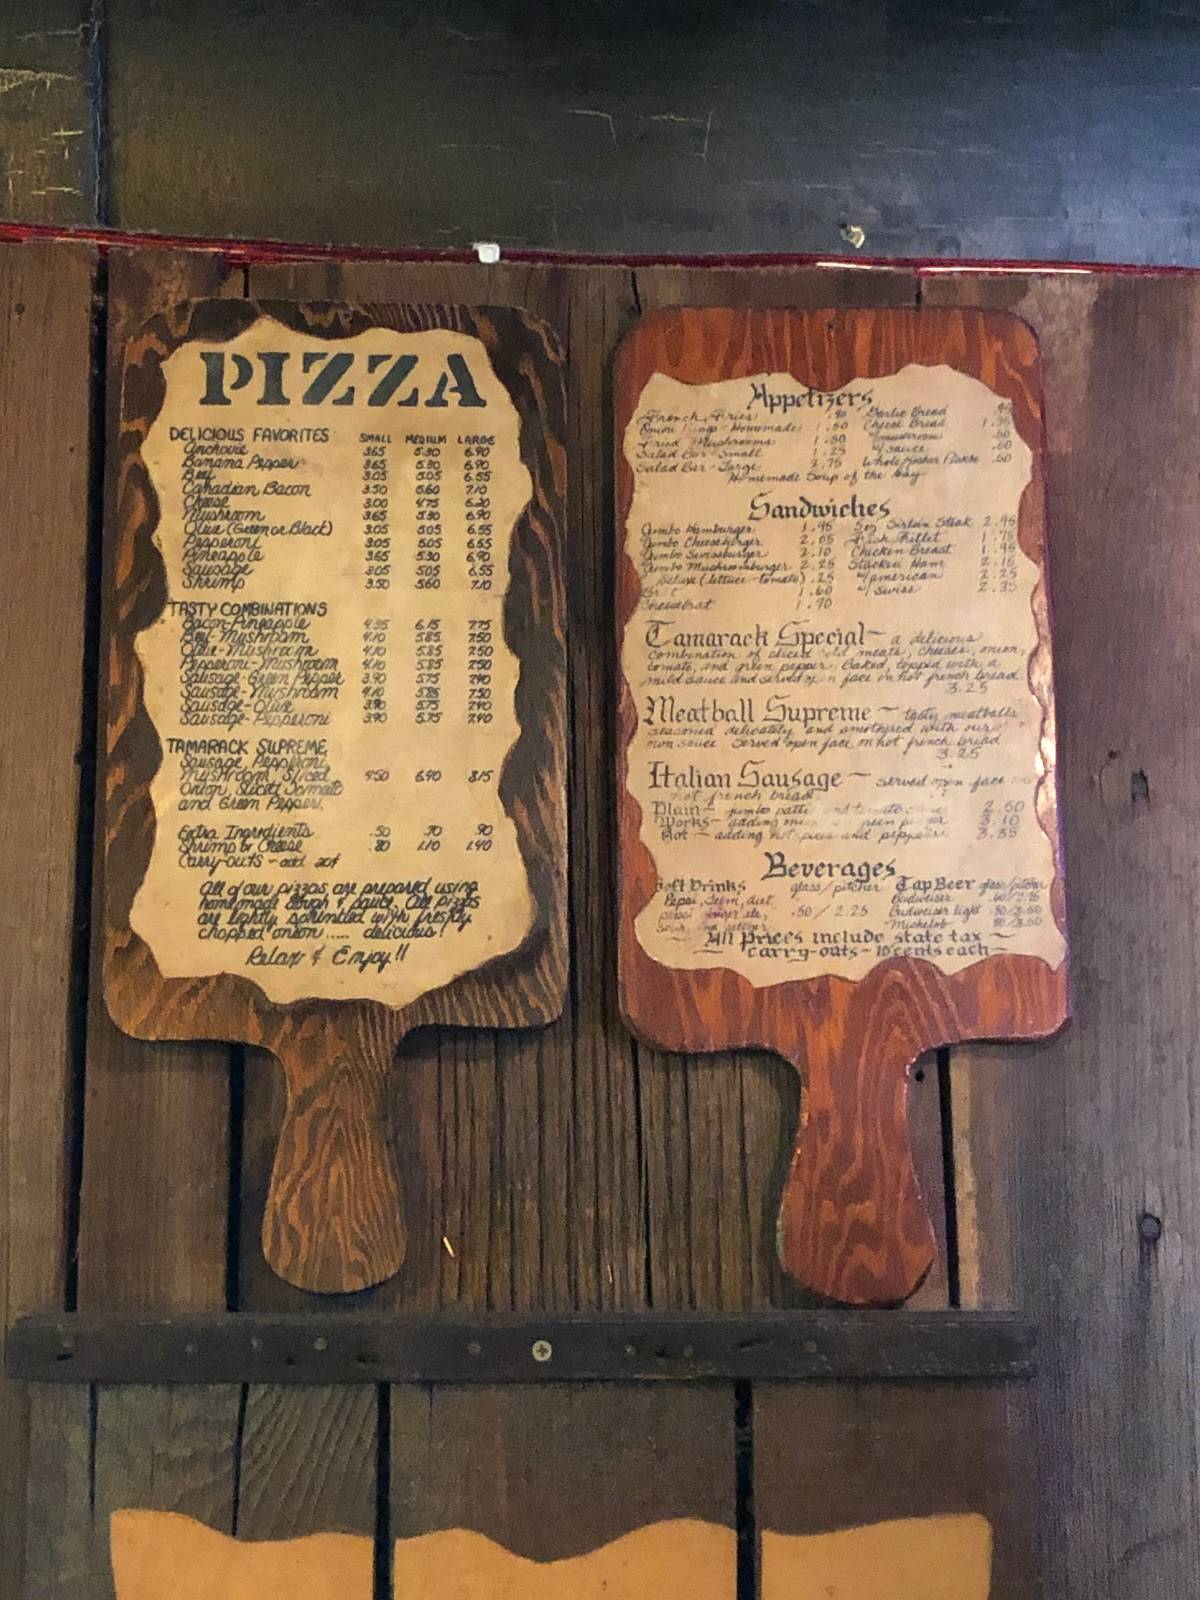 PIZZA
DELICIOUS FAVORITES SMALL MEDIUM LARGE
Anchovie 3.65 5.30 6.90
Banana Pepper 3.65 5.30 6.90
Beef 3.05 5.05 6.55
Canadian Bacon 3.50 5.60 7.10
Cheese 3.00 4.75 6.20
Mushroom 3.65 5.30 6.90
Olive (Green or Black) 3.05 5.05 6.55
Pepperoni 3.05 5.05 6.55
Pineapple 3.65 5.30 6.90
Sausage 3.05 5.05 6.55
Shrimp 3.50 5.60 7.10
TASTY COMBINATIONS
Bacon-Pineapple 4.35 6.15 7.75
Beef-Mushroom 4.10 5.85 7.50
Olive-Mushroom 4.10 5.85 7.50
Pepperoni-Mushroom 4.10 5.85 7.50
Sausage-Green Pepper 3.90 5.75 7.40
Sausage-Mushroom 4.10 5.85 7.50
Sausage-Olive 3.90 5.75 7.40
Sausage-Pepperoni 3.90 5.75 7.40
TAMARACK SUPREME
Sausage, Pepperoni,
Mushroom, Sliced 4.50 6.40 8.15
Onion, Sliced Tomato
and Green Pepper.
Extra Ingredients .50 .70 .90
Shrimp or Cheese .80 1.10 1.40
Carry-outs - add 20¢
All of our pizzas are prepared using
homemade dough & sauce. All pizzas
are lightly sprinkled with freshly
chopped onion..... delicious!
Relax & Enjoy!!
Appetizers
French Fries .90 Garlic Bread .95
Onion Rings-Homemade 1.50 Cheese Bread 1.35
Fried Mushrooms 1.50 w/mushroom .60
Salad Bar-Small 1.25 w/sauce .60
Salad Bar-Large 2.75 Whole Kosher Pickle .60
Homemade Soup of the Day
Sandwiches
Jumbo Hamburger 1.95 5oz Sirloin Steak 2.95
Jumbo Cheeseburger 2.05 Fish Fillet 1.75
Jumbo Swissburger 2.10 Chicken Breast 1.95
Jumbo Mushroomburger 2.25 Stacked Ham 2.15
Deluxe (lettuce-tomato) .25 w/american 2.25
Brat 1.60 w/swiss 2.35
Cheesebrat 1.70
Tamarack Special - a delicious
combination of sliced cold meats, cheeses, onion,
tomato, and green pepper. Baked, topped with a
mild sauce and served open face on hot french bread
3.25
Meatball Supreme - tasty meatballs
seasoned delicately and smothered with our
own sauce. Served open face on hot french bread
3.25
Italian Sausage - served open face on
hot french bread.
Plain - jumbo pattie and tomato sauce 2.50
Works - adding onion green pepper 3.10
Hot - adding hot spices and peppers 3.35
Beverages
Soft Drinks glass/pitcher Tap Beer glass/pitcher
Pepsi, 7up, diet Budweiser
pepsi, ginger ale, .50/2.25 Budweiser Light
sour Michelob
All Prices include state tax
carry-outs - 10 cents each